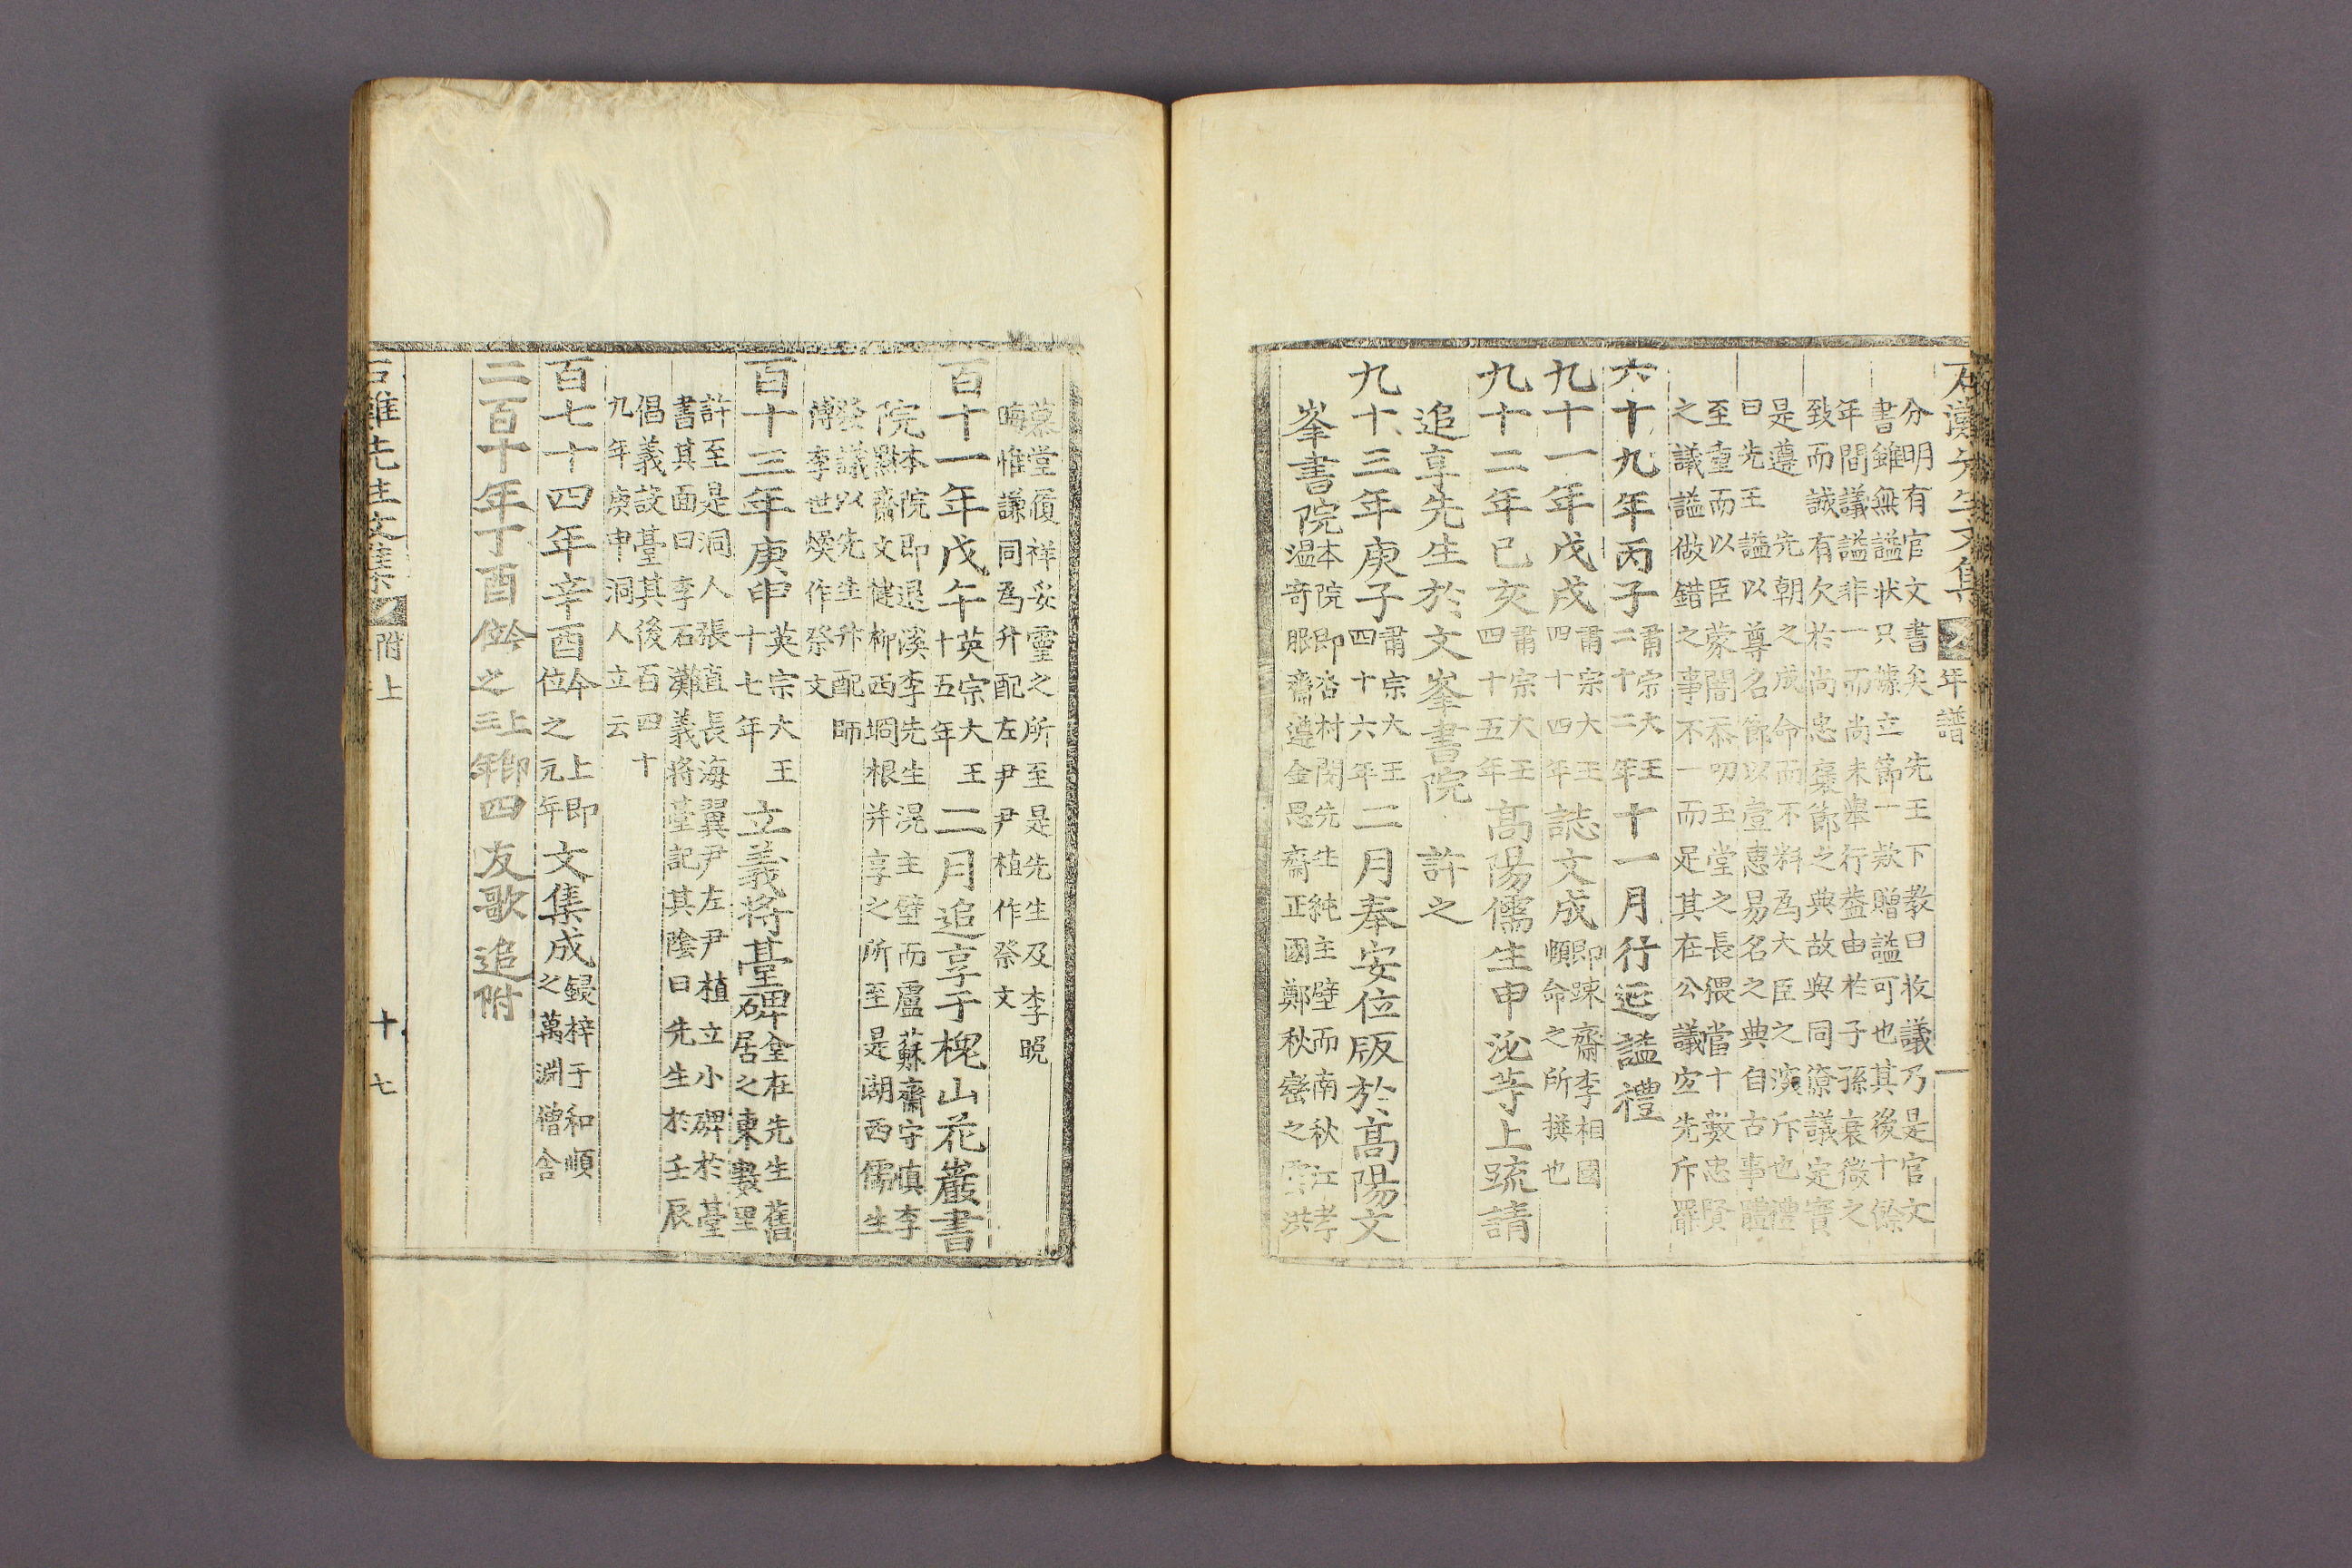 石灘先生文集 年譜
分明有官文書矣 先王下教曰收議乃是官文
書雖無諡狀只據立節一款贈諡可也其後十餘
年間議諡非一而尚未擧行蓋由於子孫衰微之
致而誠有欠於尚忠褒節之典故與同僚議定實
是遵 先朝之成命而不料爲大臣之深斥也禮
曰先王諡以尊名節以壹惠易名之典自古事體
至重而以臣蒙闇忝叨玉堂之長猥當十數忠賢
之議諡做錯之事不一而足其在公議宜先斥罷
六十九年丙子肅宗大王二十二年十一月行延諡禮
九十一年戊戌肅宗大王四十四年誌文成即踈齋李相國頤命之所撰也
九十二年已亥肅宗大王四十五年高陽儒生申泌等上疏請
追享先生於文峯書院 許之
九十三年庚子肅宗大王四十六年二月奉安位版於高陽文
峯書院本院即杏村閔先生純主壁而南秋江孝
溫奇服齋遵金思齋正國鄭秋巒之雲洪
慕堂履祥妥靈之所至是先生及李晩
晦惟謙同爲升配左尹尹植作祭文
百十一年戊午英宗大王十五年二月追享于槐山花巖書
院本院即退溪李先生滉主壁而盧蘇齋守愼李
默齋文健柳西坰根并享之所至是湖西儒生
發議以先生升配師
傅李世煥作祭文
百十三年庚申英宗大王十七年立義將臺碑金在先生舊居之東數里
許至是洞人張直長海翼尹左尹植立小碑於臺
書其面曰李石灘義將臺記其陰曰先生於壬辰
倡義設臺其後百四十
九年庚申洞人立云
百七十四年辛酉今上即位之元年文集成錄梓于和順之萬淵僧舍
二百十年丁酉今上即位之三年四友歌追附
石灘先生文集 附上 十七